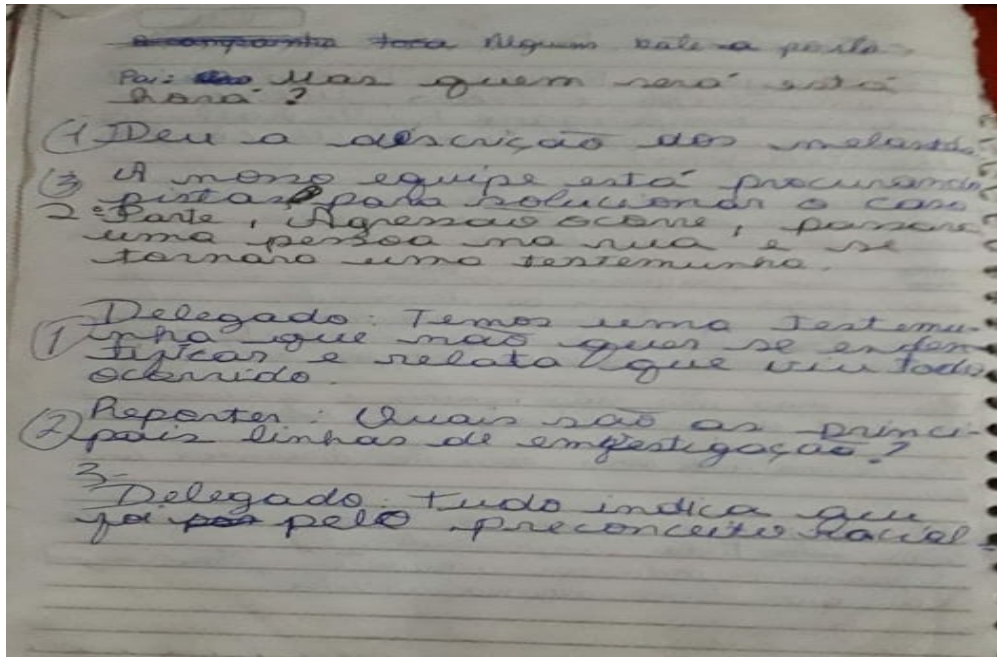 a companhia toca Alguem bate na porta.
Pai: Mas quem será está
hora?
(4) Deu a descrição dos melantes
(3) A nossa equipe está procurando
pistas para solucionar o caso
2ª Parte, Agressão ocorre, passara
uma pessoa na rua e se
tornara uma testemunha.
Delegado: Temos uma testemu-
(1) nha que não quer se enden-
tificar e relata que viu todo
ocorrido.
Reporter: Quais são as princi-
(2) pais linhas de emvestigação?
3-
Delegado: tudo indica que
foi pelo preconceito Racial